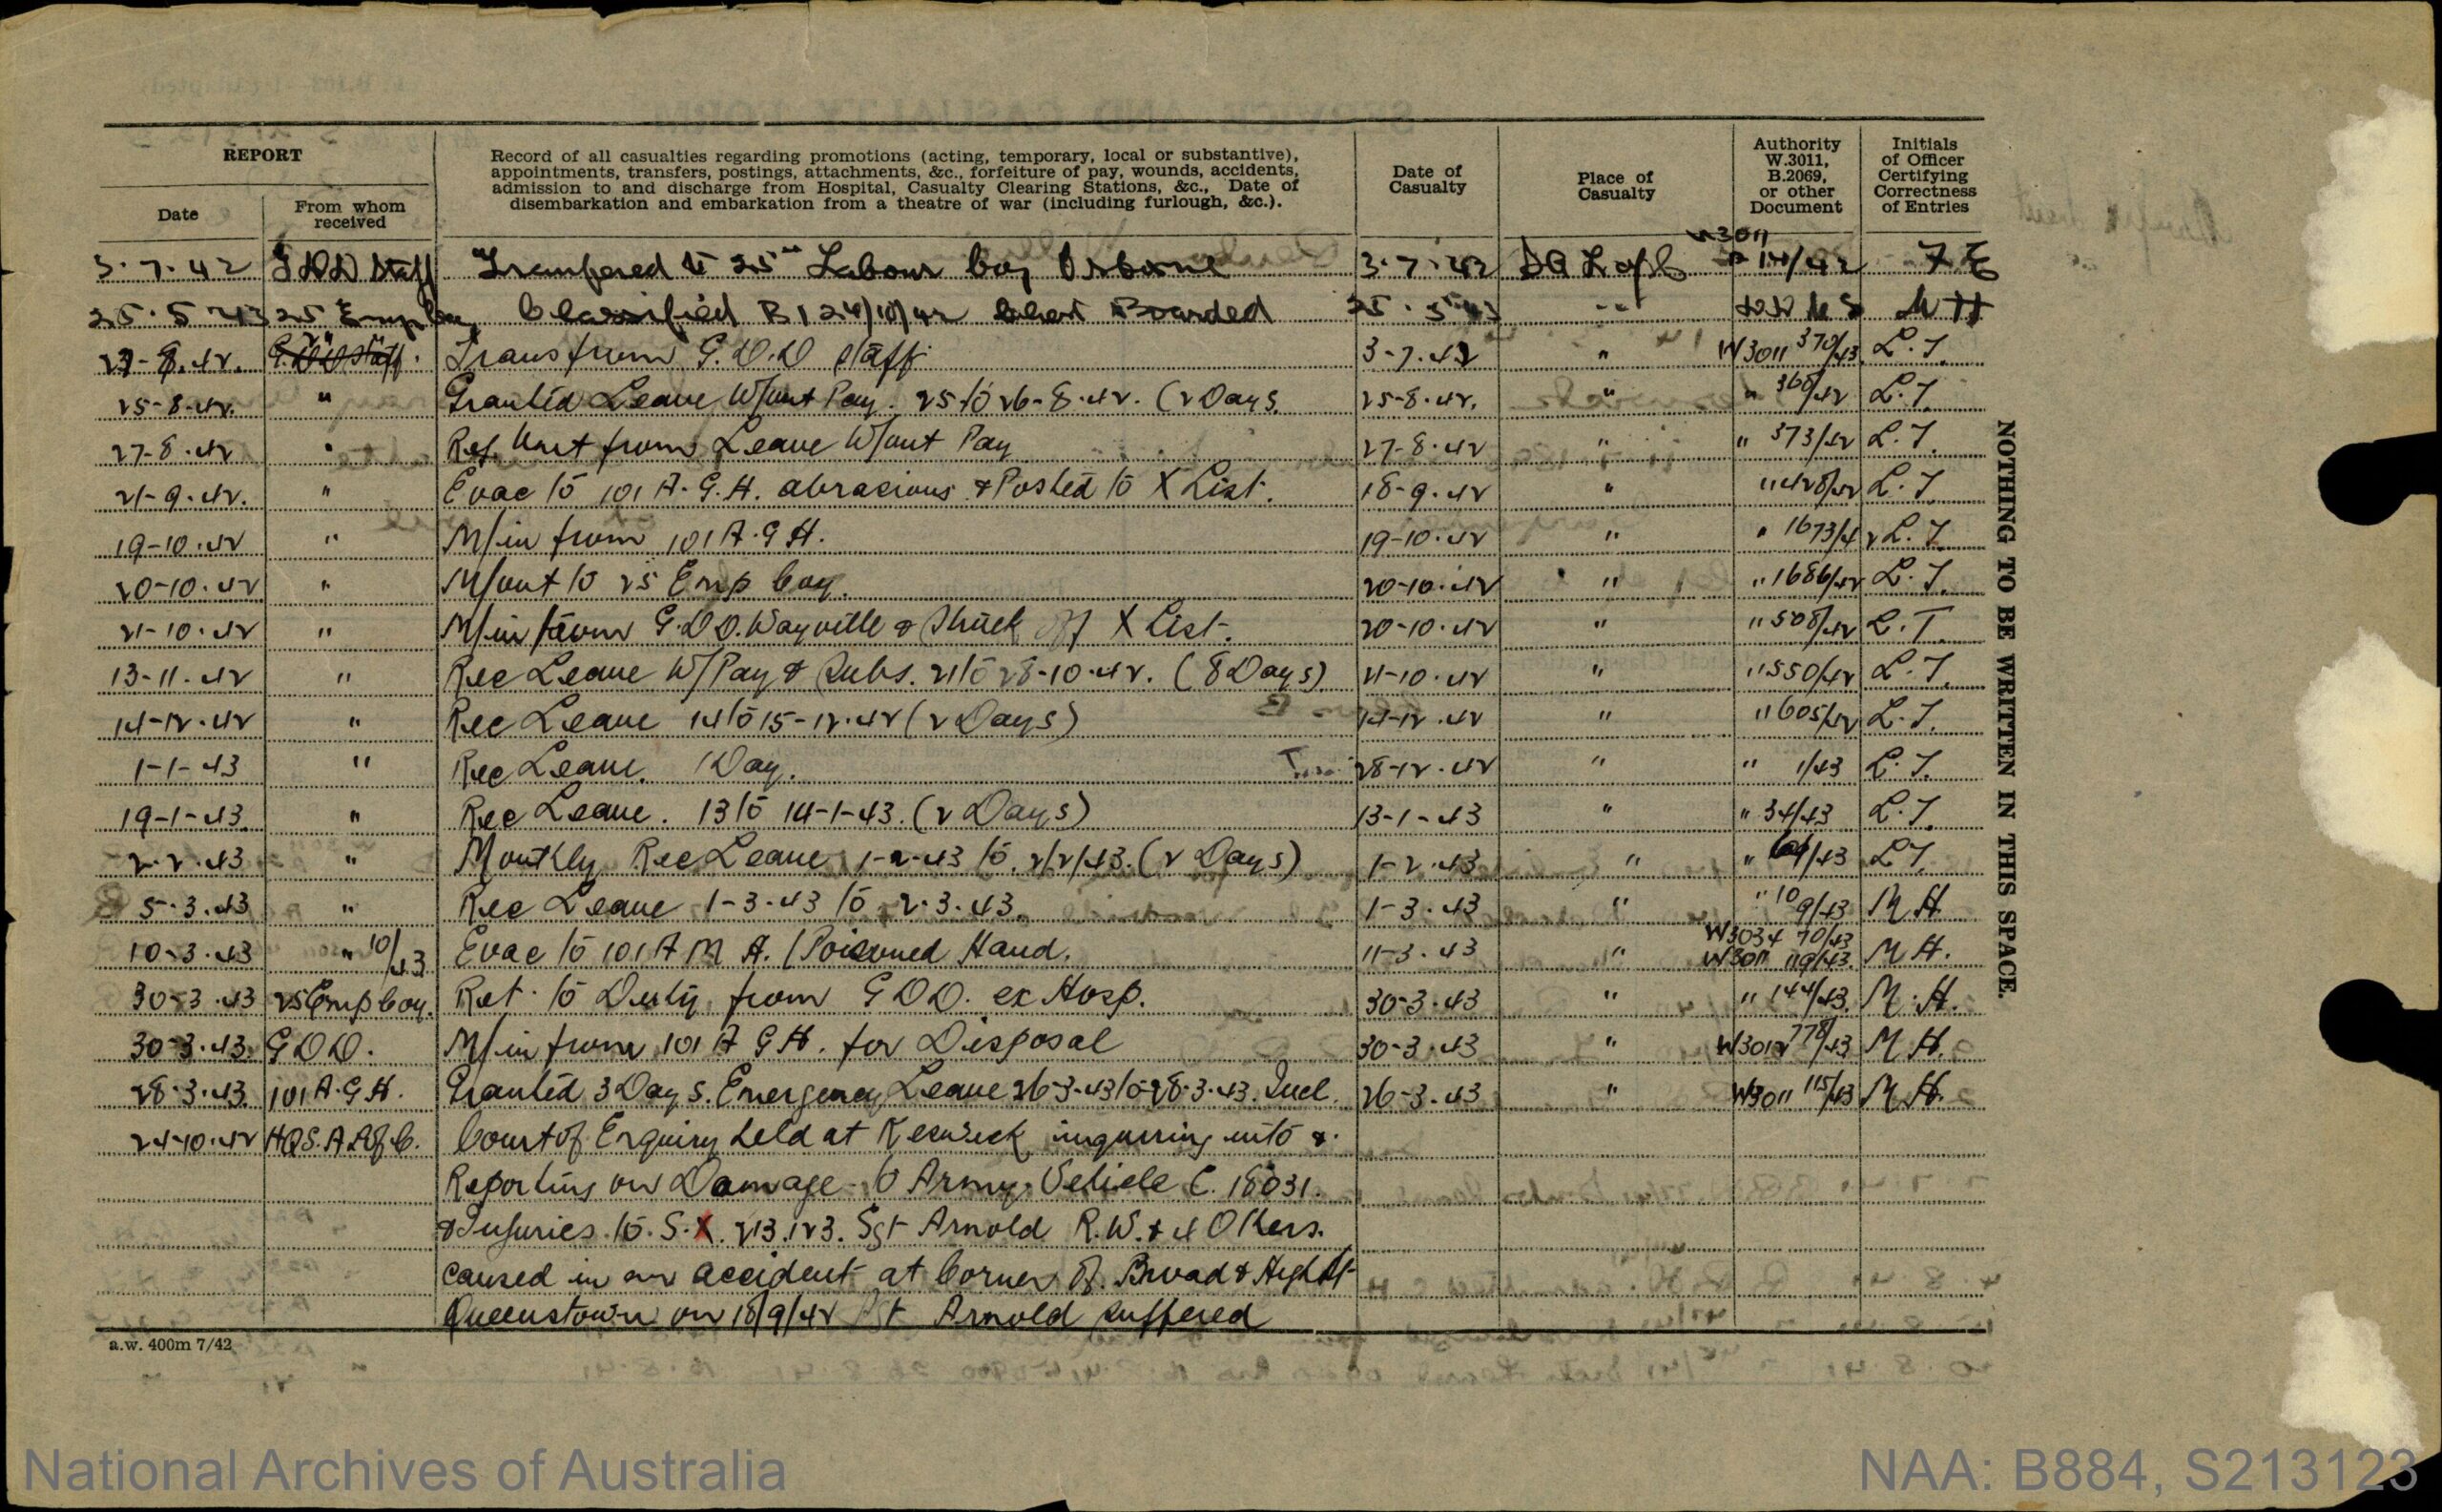 REPORT
Date
From whom received
Record of all casualties regarding promotions (acting, temporary, local or substantive),
appointments, transfers, postings, attachments, &c., forfeiture of pay, wounds, accidents,
admission to and discharge from Hospital, Casualty Clearing Stations, &c., Date of
disembarkation and embarkation from a theatre of war (including furlough, &c.).
Date of Casualty
Place of Casualty
Authority W.3011, B.2069, or other Document
Initials of Officer Certifying Correctness of Entries
3.7.42 GDD Staff Transfered to 25th Labour Coy Osborne 3.7.42 SA L of C W3011 14/42
25.5.43 25 Emp Coy Classified B1 24/10/42 Boarded 25.5.43 " MH
G.D.D Staff. Trans from G.D.D Staff 3-7-42 " W3011 370/43 L.T.
25-8-42. " Granted Leave W/out Pay. 25 to 26-8-42. (2 Days. 25-8-42. " " 360/42 L.T.
27-8-42 " from Leave W/out Pay 27-8-42 " " 373/42 L.T.
21-9-42. " Evac to 101 A.G.H. abrasions & Posted to X List. 18-9-42 " " 428/42 L.T
19-10-42 " M/in from 101 A.G.H. 19-10-42 " " 1673/42 L.T.
20-10-42 " M/out to 25 Emp Coy. 20-10-42 " " 1686/42 L.T.
21-10-42 " M/in from G.D.D. Wayville & Struck off X List. 20-10-42 " " 508/42 L.T.
13-11-42 " Rec Leave W/Pay & Subs. 21 to 28-10-42. (8 Days) 21-10-42 " " 550/42 L.T.
14-12-42 " Rec Leave 14 to 15-12-42 (2 Days) 14-12-42 " " 605/42 L.T.
1-1-43 " Rec Leave. 1 Day. 28-12-42 " " 1/43 L.T.
19-1-43. " Rec Leave. 13 to 14-1-43. (2 Days) 13-1-43 " " 34/43 L.T.
2-2-43 " Monthly Rec Leave 1-2-43 to 2/2/43. (2 Days) 1-2-43 " " L.T.
5.3.43 " Rec Leave 1-3-43 to 2.3.43. 1-3-43 " " 109/43 M H
10-3-43 " 10/43 Evac to 101 A M H. (Poisoned Hand. 11-3-43 " W3034 70/43 W3011 119/43. M H.
30-3-43 25 Emp Coy. Ret. to Duty from G D D. ex Hosp. 30-3-43 " " 144/43. M.H.
30-3-43. G D D. M/in from 101 A G H. for Disposal 30-3-43 " W3012 778/43 M H.
28-3-43. 101 A.G.H. Granted 3 Days. Emergency Leave 26-3-43 to 28-3-43. Incl. 26-3-43 " W3011 115/43 M.H.
24-10-42 HQ S.A L of C. Court of Enquiry held at Keswick inquiring into &
Reporting on Damage to Army Vehicle C. 18031.
& Injuries to S.X. 213123. Sgt Arnold R.W. & 4 Others.
caused in an accident at Corner of Broad & High St
Queenstown on 18/9/42 Sgt Arnold suffered
NOTHING TO BE WRITTEN IN THIS SPACE.
a.w. 400m 7/42
National Archives of Australia
NAA: B884, S213123